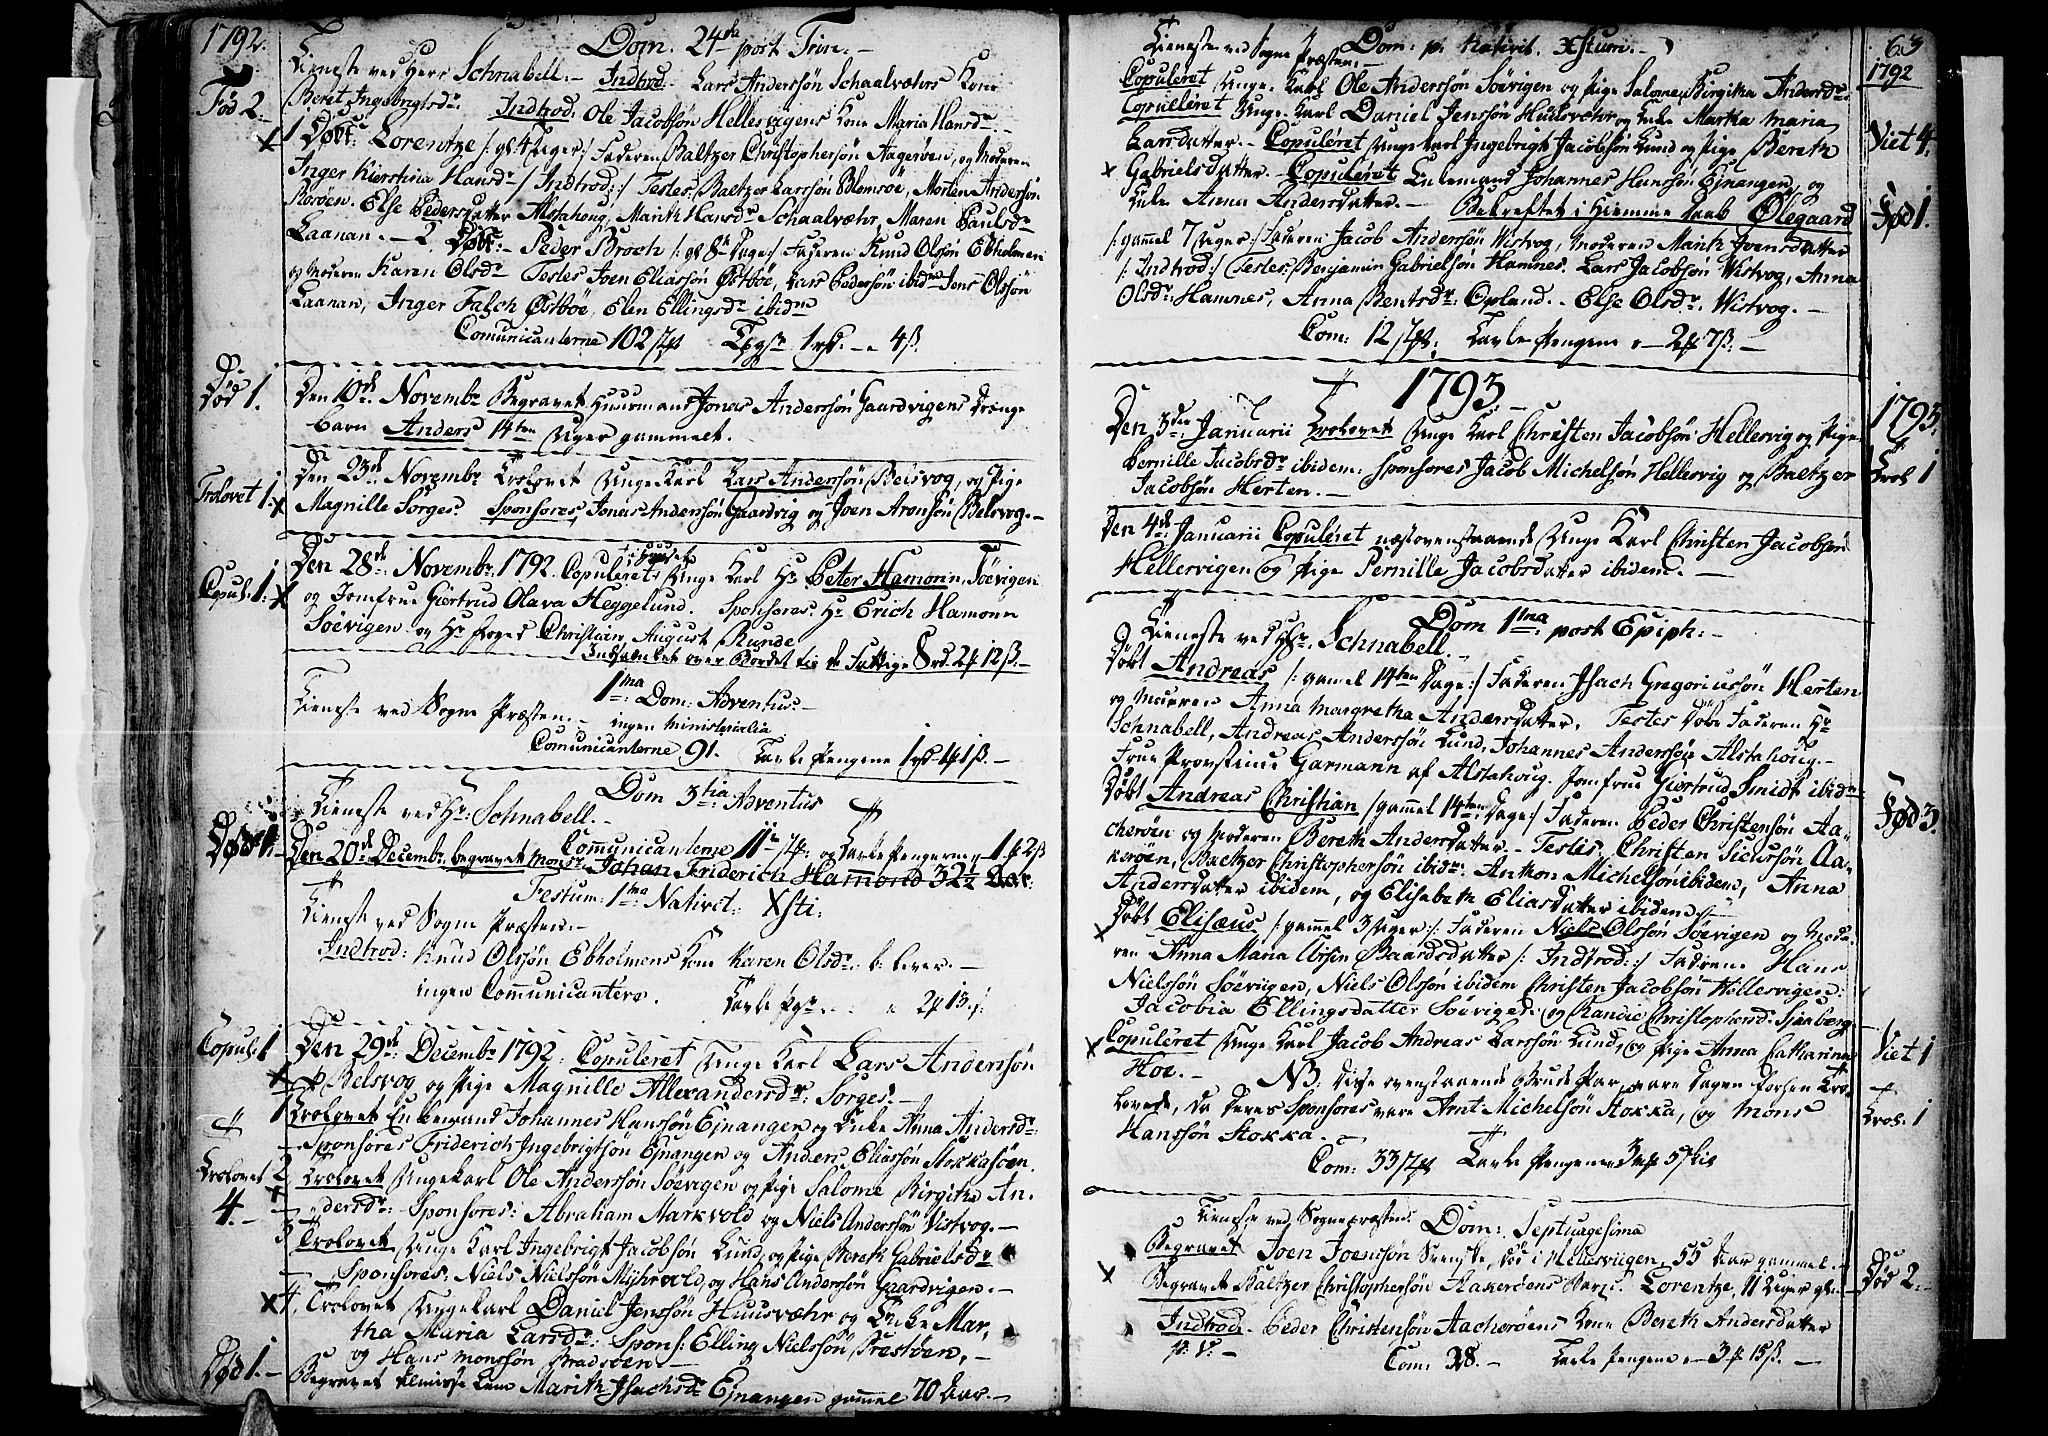 1792.
Dom. 24de post Trin. –
Tieneste ved Herr Schnabell. – Indtrod: Lars Anderssøn Schaalværs Kone
Fød 2.
Beret Ingebrigtsdr. Indtrod. Ole Jacobsøn Hellesvigens Kone Maria Hansdr. –
1 Døbt: Lorentze /: gl 4 Uger :/ Faderen Baltzer Christophersøn Aagerøen, og Moderen
Inger Kierstina Hansdr / Indtrod :/ Testes: Baltzer Larssøn Blomsøe, Morten Anderssøn
Rosøen. Else Pedersdatter Alstahoug, Marith Hansdr Schaalvæhr, Maren Paulsdr
Laanan. – 2 Døbt: – Peder Broch /: gl 8te Dage :/ Faderen Knud Olssøn Ebholmen
og Moderen Karen Olsdr Testes Joen Eliassøn Østbøe, Lars Pedersøn ibidm Jens Olssøn
Laanan, Inger Falch Østbøe, Elen Ellingsdr ibidm
Comunicanterne 102
Død 1.
Den 10de Novembr Begravet Huusmand Jonas Anderssøn Gaardvigens Drenge
barn Anders 14ten Uger gammelt.
Trolovet 1.
Den 23de Novembr Trolovet Unge Karl Lars Anderssøn Belsvog, og Pige
Magnille Sorges. Sponsores Jonas Anderssøn Gaardvig og Joen Aronsøn Belsvog. –
Copul: 1:
Den 28de Novembr. 1792. Copuleret i Huuset Unge Karl Hr Peter Hamonn, Søevigen
og Jomfrue Giertrud Olava Heggelund. Sponsores Hr Erich Hamonn
Søevigen og Hr Foged Christian August Runde
Indsamlet over Bordet til de Fattige 8 rd. 2 12 ß. –
1ma Dom: Adventus. –
Tieneste ved Sogne Præsten. – ingen ministerialia
Comunicanterne 91. Tavle Pengene
Dom 3tia Adventus
Tieneste ved Hr: Schnabell. –
Comunicanterne 11 og Tavle Pengerne
Død 1.
Den 20de Decembr. begravet Monsr Johan Friderich Hammond 32½ Aar:
Festum 1ma Nativit: Xsti:
Tieneste ved Sogne Præsten. –
Indtrod: Knud Olssøn Ebholmens Kone Karen Olsdr.
ingen Communicantere. Tavle
Copul: 1
Den 29de Decembr 1792: Copuleret Unge Karl Lars Anderssøn
Belsvog og Pige Magnille Allexandersdr: Sorges. –
1 Trolovet Enkemand Johannes Hanssøn Ejnangen og Enke Anna Andersdr:
Sponsores Friderich Ingebrigtsøn Ejnangen og Anders Eliassøn Stokkasøen.
Trolovet
4. –
2 Trolovet Ungekarl Ole Anderssøn Søevigen og Pige Salome Birgitha An-
dersdr: Sponsores: Abraham Markvold og Niels Anderssøn Vistvog. –
3 Trolovet Unge Karl Ingebrigt Jacobsøn Lund, og Pige Bereth Gabrielsdr
Sponsores: Niels Nielssøn Myhrvold, og Hans Anderssøn Gaardvigen. –
4. Trolovet Ungekarl Daniel Jenssøn Huusvæhr og Enke Mar-
tha Maria Larsdr: Spons: Elling Nielssøn Præstøen, –
og Hans Monssøn Brasøen –
Død 1. –
Begravet Marith Isachsdr Ejnangen gammel 70 Aar. –
63
1792
Dom: p. Nativit. Xstum. –
Tieneste ved Sogne Præsten. –
Copuleret Unge Karl Ole Anderssøn Søevigen og Pige Salome Birgitha Andersdr.
Copuleret Unge Karl Daniel Jenssøn Huusvæhr og Enke Martha Maria
Viet 4.
Larsdatter. – Copuleret Unge Karl Ingebrigt Jacobsøn Lund og Pige Bereth
Gabrielsdatter. Copuleret Enkemand Johannes Hanssøn Ejnangen, og
Enke Anna Andersdatter. – Bekræftet i Hiemme Daab Olegaard
Fød 1.
/: gammel 7 Uger :/ Faderen Jacob Anderssøn Wistvog, Moderen Marith Joensdatter
/: Indtrod :/ Testes: Benjamin Gabrielsøn Hamnes. Lars Jacobsøn Wistvog, Anna
Olsdr: Hamnes, Anna Bentsdr: Opland. – Else Olsdr: Wistvog. –
Com: 12 Tavle Pengene
1793
1793.
Den 3die Januarii Trolovet Unge Karl Christen Jacobsøn Hellesvig og Pige
Trol 1
Pernille Jacobsdr ibidem: Sponsores Jacob Michelsøn Hellesvig og Baltzer
Jacobsøn Herten. –
Den 4de Januarii Copuleret næstovenstaaende Unge Karl Christen Jacobsøn
Hellesvigen og Pige Pernille Jacobsdatter ibidem. –
Dom 1ma: post Epiph: –
Tieneste ved Hr. Schnabell. –
Døbt Andreas /: gamel 14ten Dage :/ Faderen Isach Gregoriussøn Herten
og Moderen Anna Margretha Andersdatter. Testes Døbe Faderen Hr
Schnabell, Andreas Anderssøn Lund, Johannes Anderssøn Alstahoug. –
Frue Provstinde Garmann af Alstahoug. Jomfrue Giertrud Smidt ibidm
Fød 3.
Døbt Andreas Christian /: gammel 14ten Dage :/ Faderen Peder Christensøn Aa-
cherøen og Moderen Bereth Andersdatter. – Testes: Christen Siurssøn Aa-
kerøen, Baltzer Christophersøn ibidm: Anthon Michelsøn ibidem, Anna
Andersdatter ibidem, og Elisabeth Eliasdatter ibidem. –
Døbt Elisæus /: gammel 3 Uger :/ Faderen Niels Olssøn Søevigen og Mode-
ren Anna Maria Ursin Baardsdatter /: Indtrod :/ Hans
Nielssøn Søevigen, Niels Olssøn ibidem Christen Jacobsøn Hellesvigen:
Jacobia Ellingsdatter Søeviged: og Randie Christophersd: Sjønberg
Copuleret Unge Karl Jacob Andreas Larssøn Lund, og Pige Anna Catharina
Viet 1
Hoe. – NB: Disse ovenstaaende Brude Par, vare Dagen forhen Tro-
lovede, da deres Sponsores vare Arnt Michelsøn Stokka, og Mons
Trol. 1
Hanssøn Stokka. –
Com: 33 Tavle Pengene
Tieneste ved Sognepræsten: Dom: Septuagesima
Begravet Joen Joenssøn Svenske, død i Hellesvigen, 55 Aar gammel. –
Begravet Baltzer Christophersøn Aakerøens Lorentze, 11 Uger gl. –
Død 2.
Indtrod. Peder Christensøn Aacherøens Kone Bereth Andersdatter
Com: 38. – Tavle Pengene – 3 15 ß. –